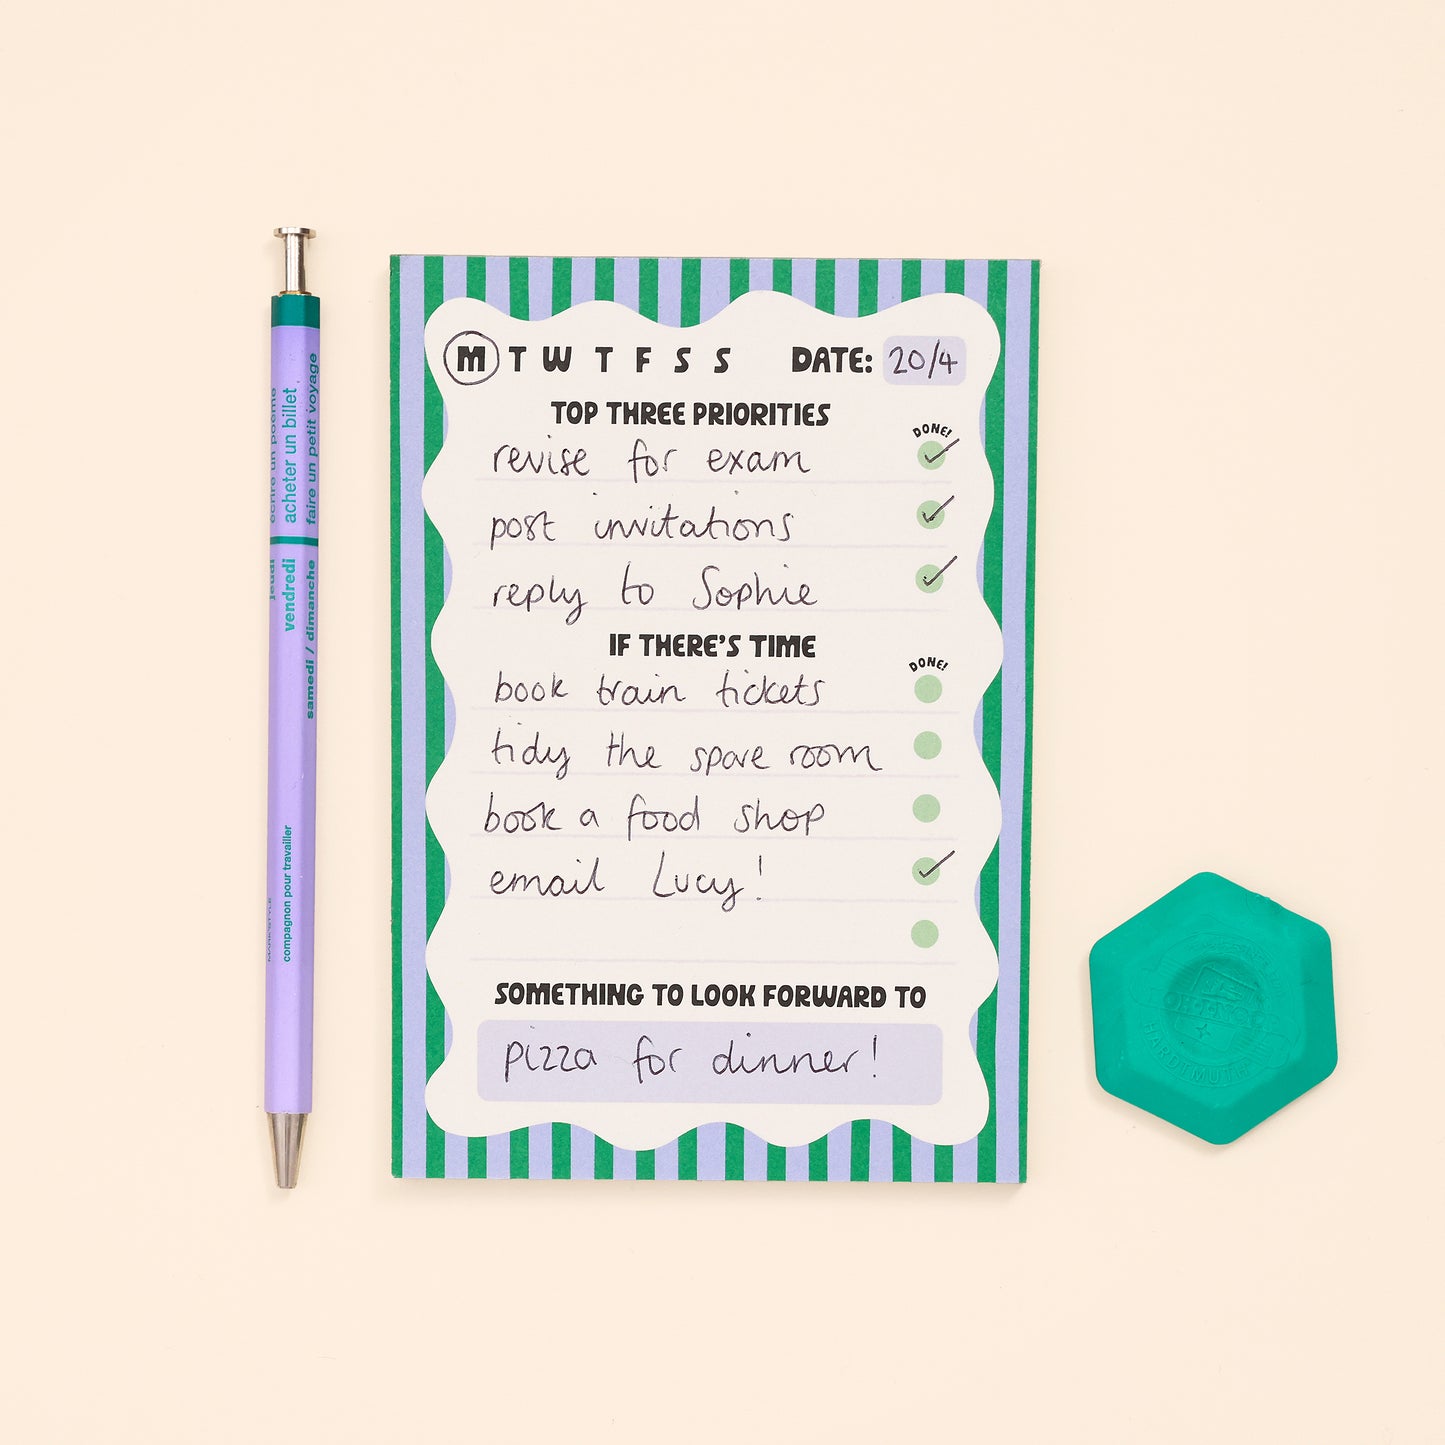 M T W T F S S DATE: 20/4
TOP THREE PRIORITIES
DONE!
revise for exam
post invitations
reply to Sophie
IF THERE'S TIME
DONE!
book train tickets
tidy the spare room
book a food shop
email Lucy!
SOMETHING TO LOOK FORWARD TO
pizza for dinner!
écrire un poème
acheter un billet
faire un petit voyage
jeudi
vendredi
samedi / dimanche
MARK'STYLE
compagnon pour travailler
KOH-I-NOOR
HARDTMUTH